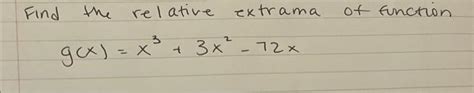 Find the relative extrama of function
g(x) = x³ + 3x² - 72x